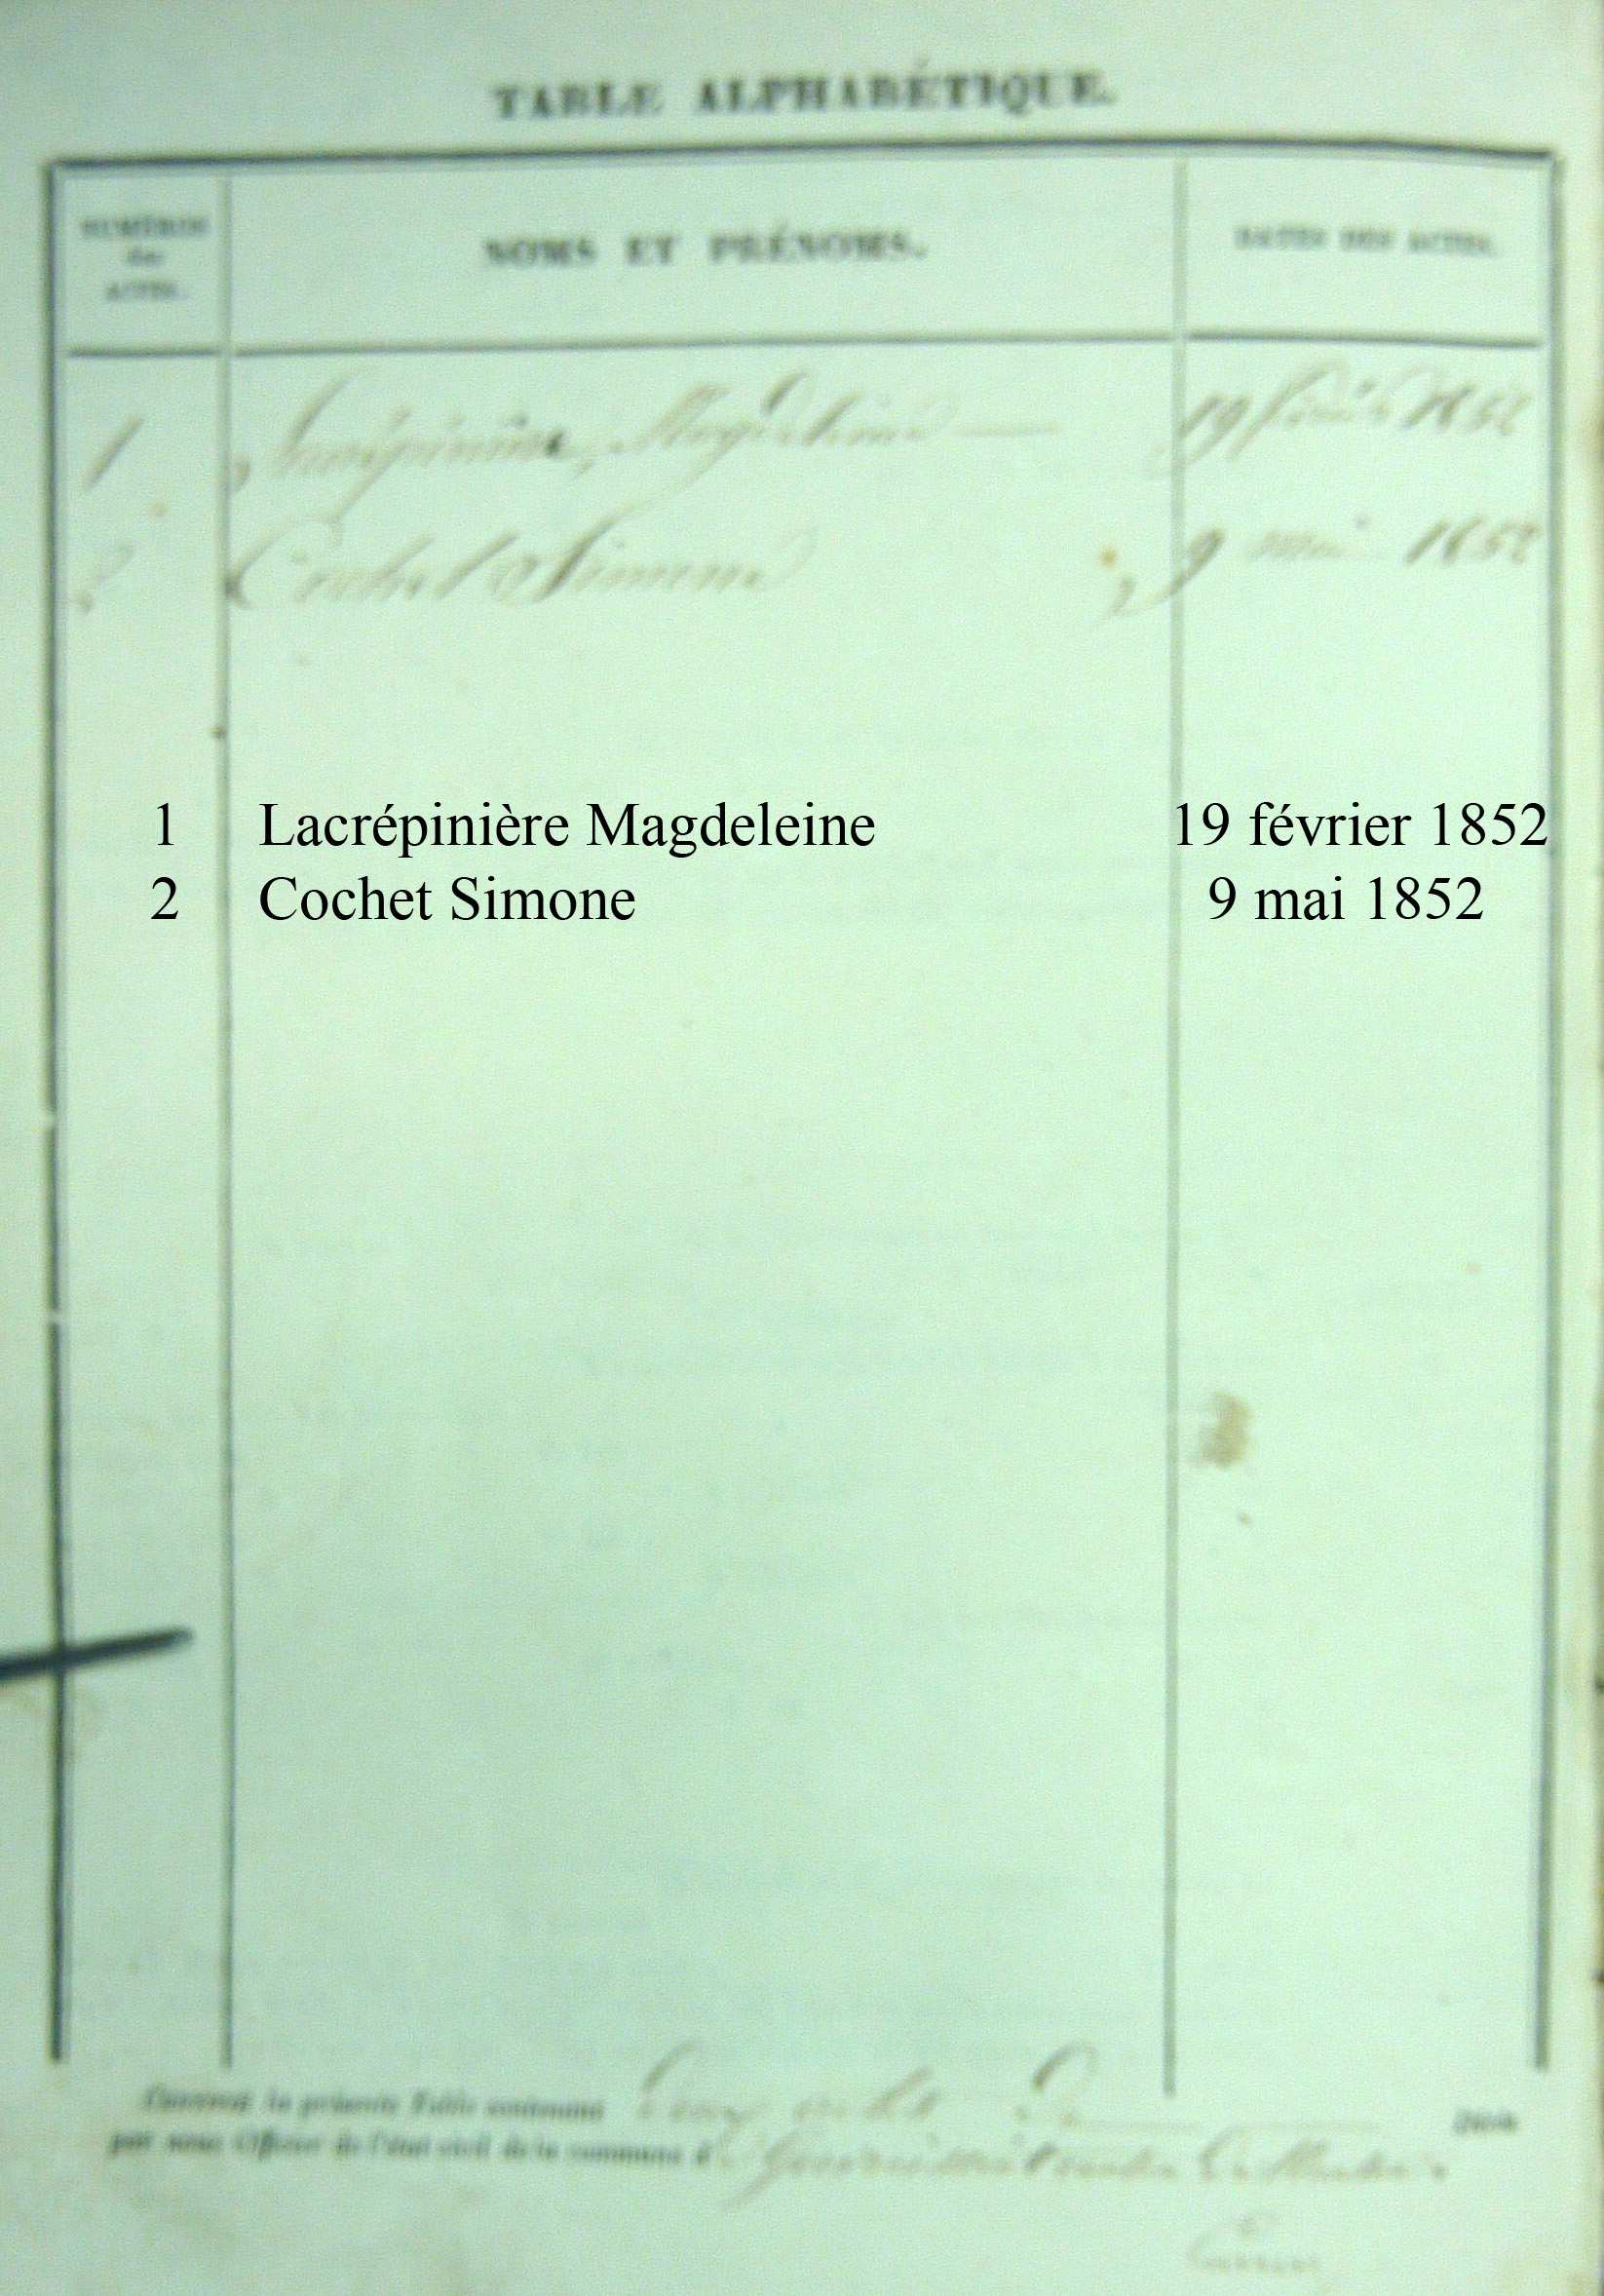 TABLE ALPHABÉTIQUE.
NUMÉROS
des
ACTES.
NOMS ET PRÉNOMS.
DATES DES ACTES.
1 Lacrépinière, Magdeleine 19 février 1852
2 Cochet Simone 9 mai 1852
1 Lacrépinière Magdeleine 19 février 1852
2 Cochet Simone 9 mai 1852
la présente Table contenant Deux actes De Décès
par nous Officier de l'état civil de la commune d